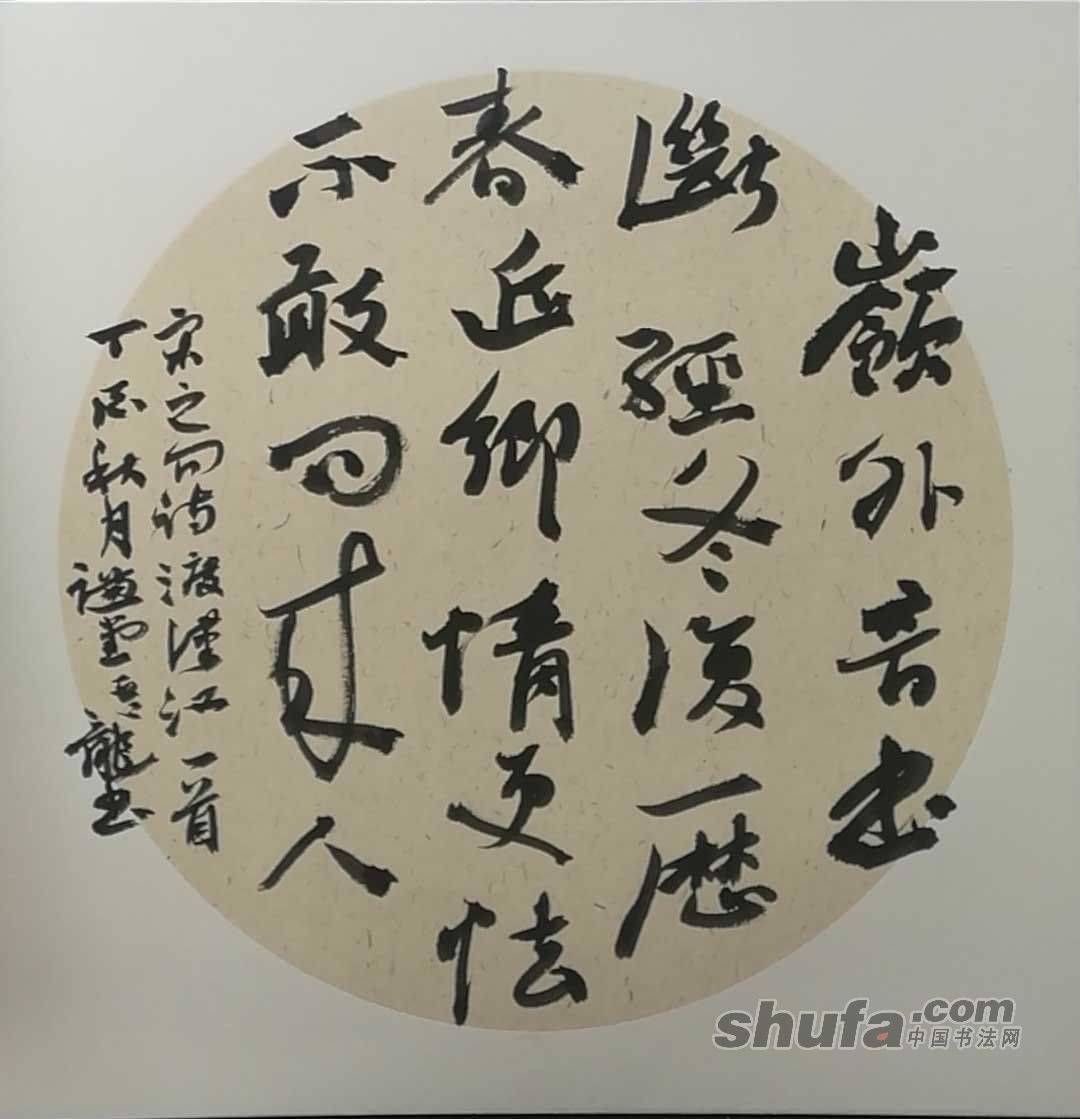 嶺外音書
斷經冬復一歷
春近鄉情更怯
不敢问来人
宋之问詩渡漢江一首
丁酉秋月堂龍書
shufa.com
中国书法网